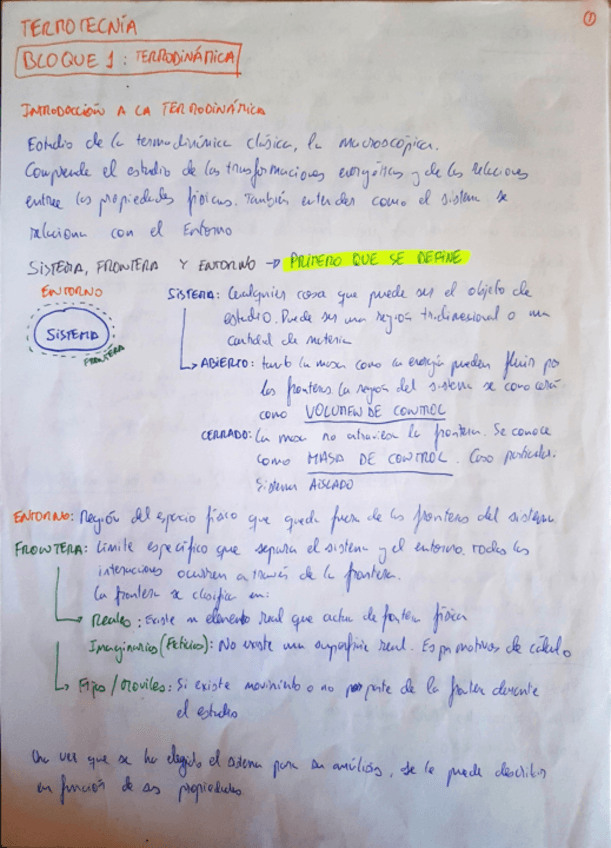 ①
TERMOTECNÍA
BLOQUE 1: TERMODINÁMICA
INTRODUCCIÓN A LA TERMODINÁMICA
Estudio de la termodinámica clásica, la macroscópica.
Comprende el estudio de las transformaciones energéticas y de las relaciones
entre las propiedades físicas. También entender como el sistema se
relaciona con el Entorno
SISTEMA, FRONTERA Y ENTORNO → PRIMERO QUE SE DEFINE
ENTORNO
SISTEMA
FRONTERA
SISTEMA: Cualquier cosa que puede ser el objeto de
estudio. Puede ser una región tridimesional o una
cantidad de materia
ABIERTO: tanto la masa como la energía pueden fluir por
las fronteras. La región del sistema se conocerá
como VOLUMEN DE CONTROL
CERRADO: La masa no atraviesa la frontera. Se conoce
como MASA DE CONTROL. Caso particular:
Sistema AISLADO
ENTORNO: Región del espacio físico que queda fuera de las fronteras del sistema
FRONTERA: Límite específico que separa el sistema y el entorno. Todas las
interaciones ocurren a través de la frontera.
La frontera se clasifica en:
Reales: Existe un elemento real que actua de frontera física
Imaginarias (Ficticias): No existe una superficie real. Es por motivos de cálculo
Fijas / Móviles: Si existe movimiento o no por parte de la frontera durante
el estudio
Una vez que se ha elegido el sistema para su análisis, se le puede describir
en función de sus propiedades